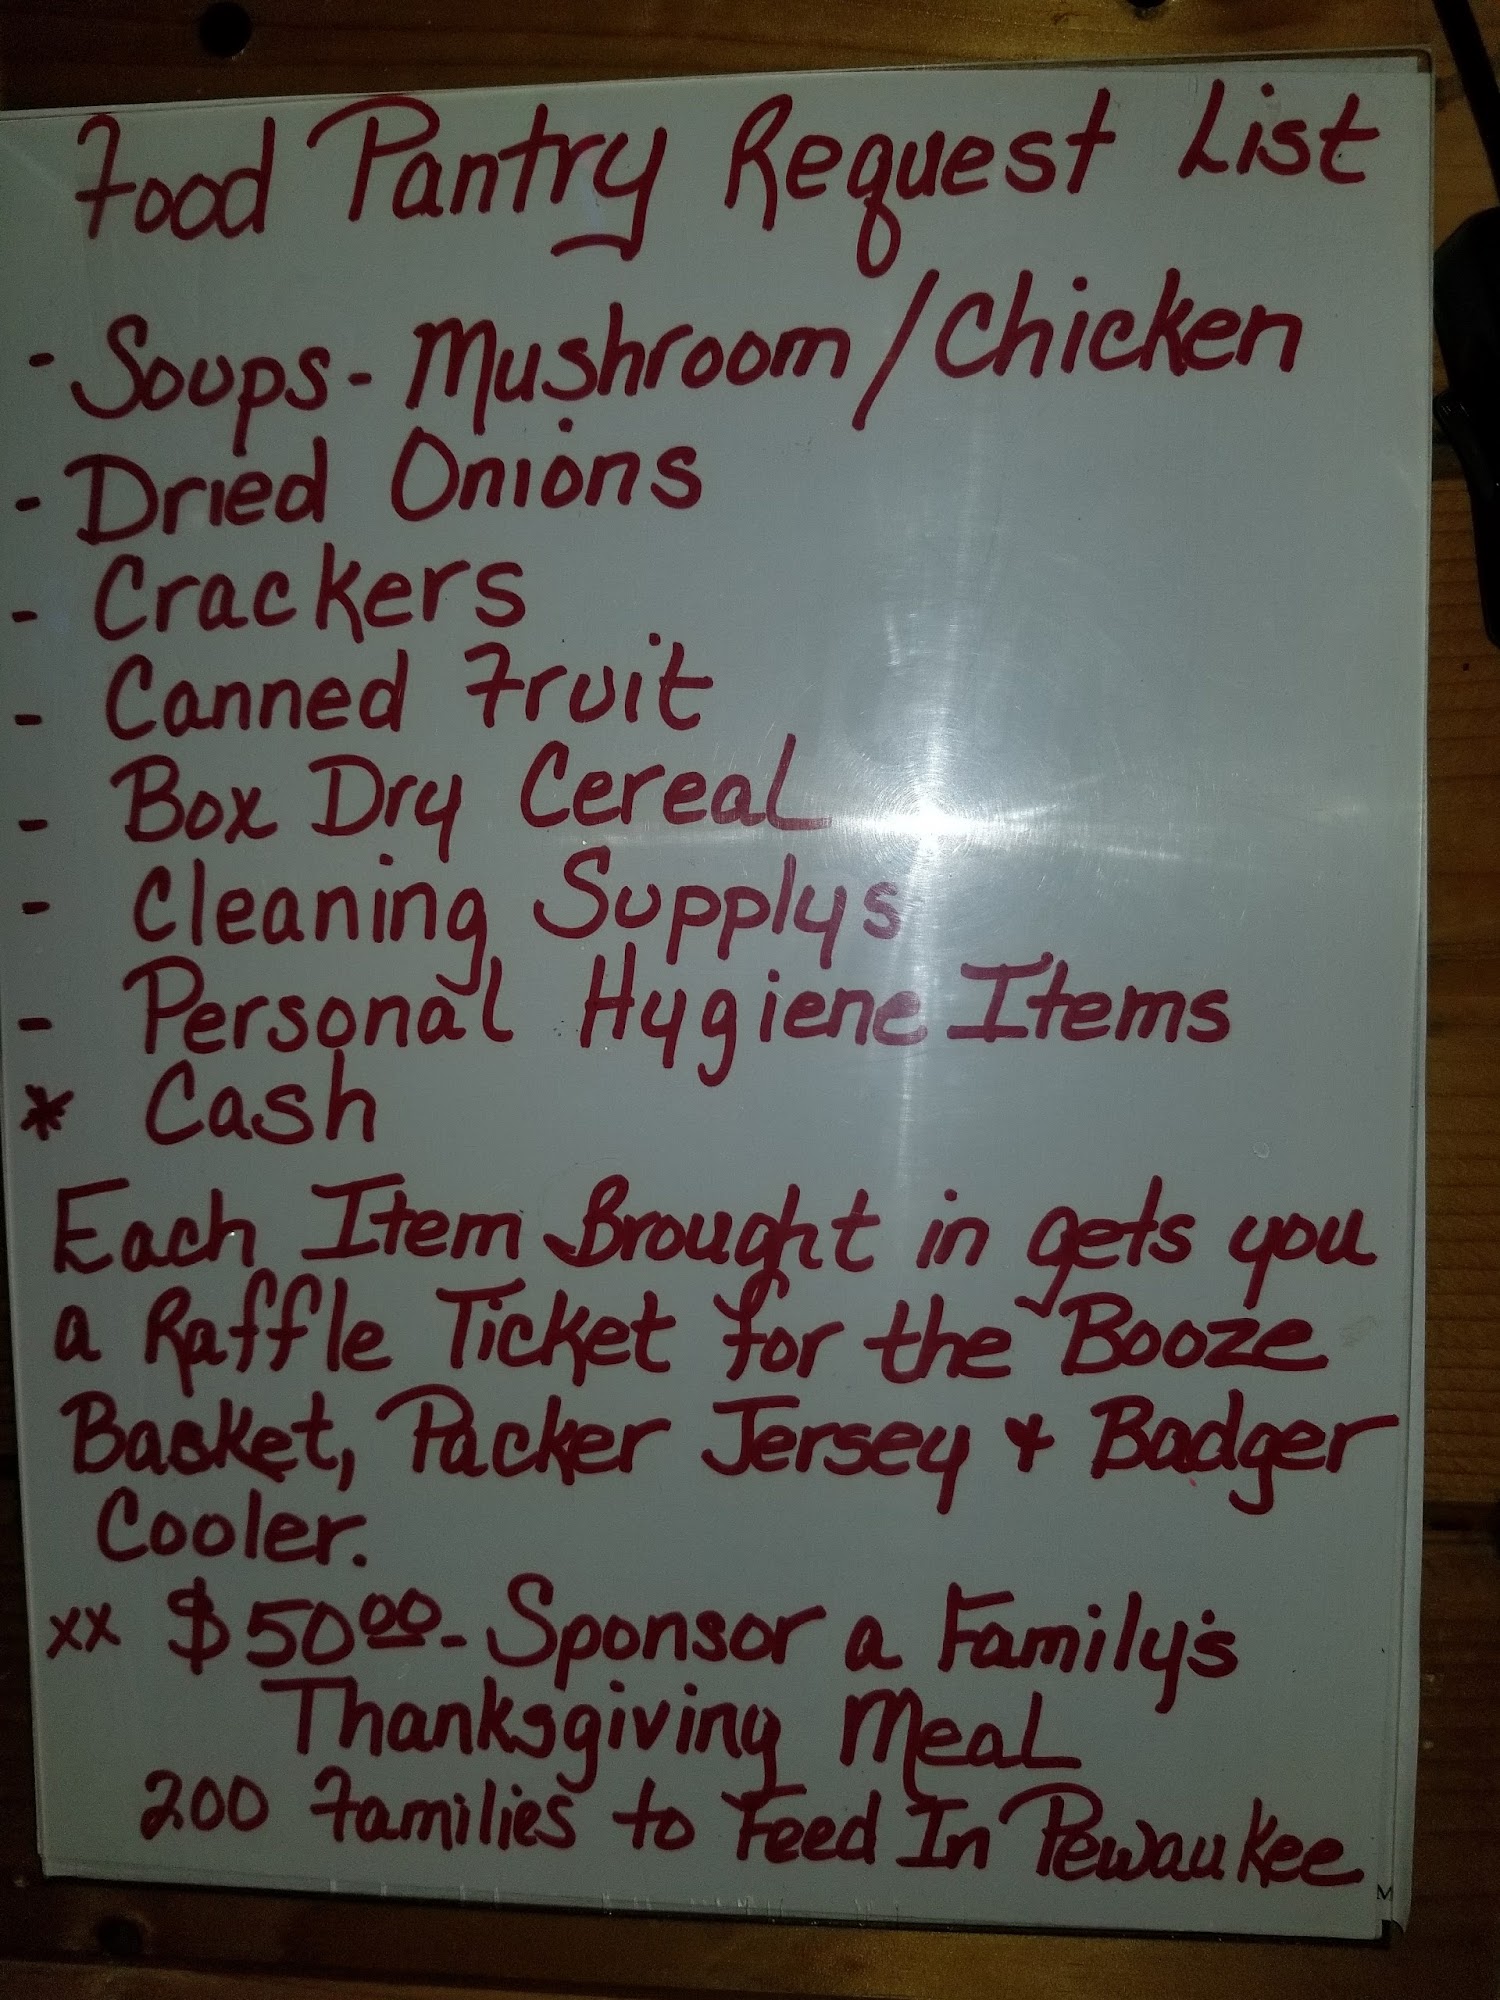 Food Pantry Request List
- Soups - Mushroom/Chicken
- Dried Onions
- Crackers
- Canned Fruit
- Box Dry Cereal
- Cleaning Supplys
- Personal Hygiene Items
* Cash
Each Item Brought in gets you
a Raffle Ticket for the Booze
Basket, Packer Jersey & Badger
Cooler.
xx $50.00 - Sponsor a Family's
Thanksgiving Meal
200 Families to Feed In Pewaukee
M